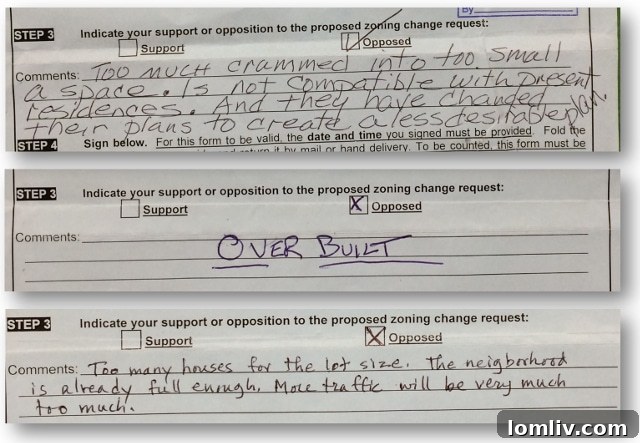 By
STEP 3 Indicate your support or opposition to the proposed zoning change request:
Support Opposed
Comments: Too much crammed into too small
a space. Is not compatible with present
residences. And they have changed
their plans to create a less desirable plan.
STEP 4 Sign below. For this form to be valid, the date and time you signed must be provided. Fold the
return it by mail or hand delivery. To be counted, this form must be
STEP 3 Indicate your support or opposition to the proposed zoning change request:
Support X Opposed
Comments:
OVER BUILT
STEP 3 Indicate your support or opposition to the proposed zoning change request:
Support X Opposed
Comments: Too many houses for the lot size. The neigborhood
is already full enough. More traffic will be very much
too much.
lomliv.com